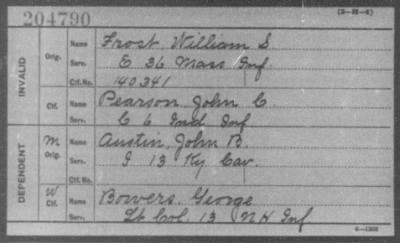 204790
(3-22-2)
INVALID
Orig.
Name Frost, William S
Serv. E 36 Mass Inf.
Ctf. No. 140341
Ctf.
Name Pearson, John C.
Serv. C 6 Ind Inf
DEPENDENT
M Orig.
Name Austin, John B.
Serv. I 13 Ky Cav.
Ctf. No.
W Ctf.
Name Bowers, George
Serv. Lt Col. 13 N H Inf